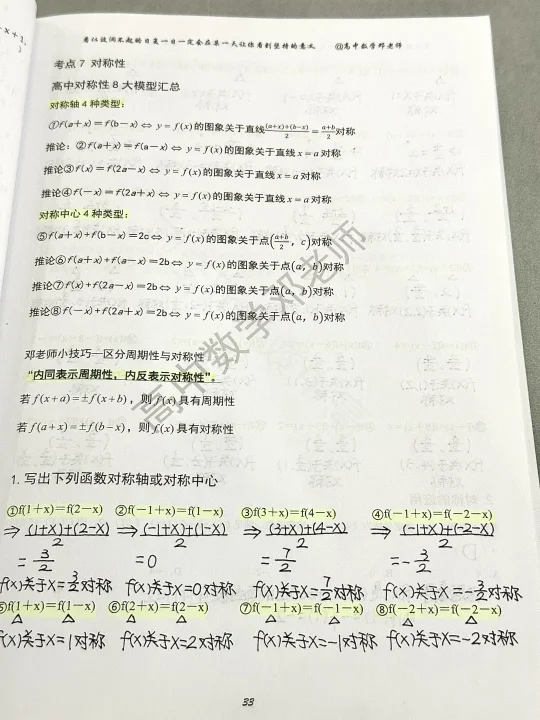 着似波澜不起的日复一日一定会在某一天让你看到坚持的意义 @高中数学邓老师
考点 7 对称性
高中对称性 8 大模型汇总
对称轴 4 种类型：
①f(a+x)=f(b-x)⇔ y=f(x)的图象关于直线\frac{(a+x)+(b-x)}{2}=\frac{a+b}{2}对称
推论：②f(a+x)=f(a-x)⇔ y=f(x)的图象关于直线x=a对称
推论③f(x)=f(2a-x)⇔ y=f(x)的图象关于直线x=a对称
推论④f(-x)=f(2a+x)⇔ y=f(x)的图象关于直线x=a对称
对称中心 4 种类型：
⑤f(a+x)+f(b-x)=2c⇔ y=f(x)的图象关于点(\frac{a+b}{2}, c)对称
推论⑥f(a+x)+f(a-x)=2b⇔ y=f(x)的图象关于点(a, b)对称
推论⑦f(x)+f(2a-x)=2b⇔ y=f(x)的图象关于点(a, b)对称
推论⑧f(-x)+f(2a+x)=2b⇔ y=f(x)的图象关于点(a, b)对称
高中数学邓老师
邓老师小技巧—区分周期性与对称性
“内同表示周期性，内反表示对称性”。
若 f(x+a)=±f(x+b)，则 f(x)具有周期性
若 f(a+x)=±f(b-x)，则 f(x)具有对称性
1. 写出下列函数对称轴或对称中心
①f(1+x)=f(2-x) ②f(-1+x)=f(1-x) ③f(3+x)=f(4-x) ④f(-1+x)=f(-2-x)
⇒\frac{(1+x)+(2-x)}{2} ⇒\frac{(-1+x)+(1-x)}{2} ⇒\frac{(3+x)+(4-x)}{2} ⇒\frac{(-1+x)+(-2-x)}{2}
=\frac{3}{2} =0 =\frac{7}{2} =-\frac{3}{2}
f(x)关于x=\frac{3}{2}对称 f(x)关于x=0对称 f(x)关于x=\frac{7}{2}对称 f(x)关于x=-\frac{3}{2}对称
⑤f(1+x)=f(1-x) ⑥f(2+x)=f(2-x) ⑦f(-1+x)=f(-1-x) ⑧f(-2+x)=f(-2-x)
f(x)关于x=1对称 f(x)关于x=2对称 f(x)关于x=-1对称 f(x)关于x=-2对称
33